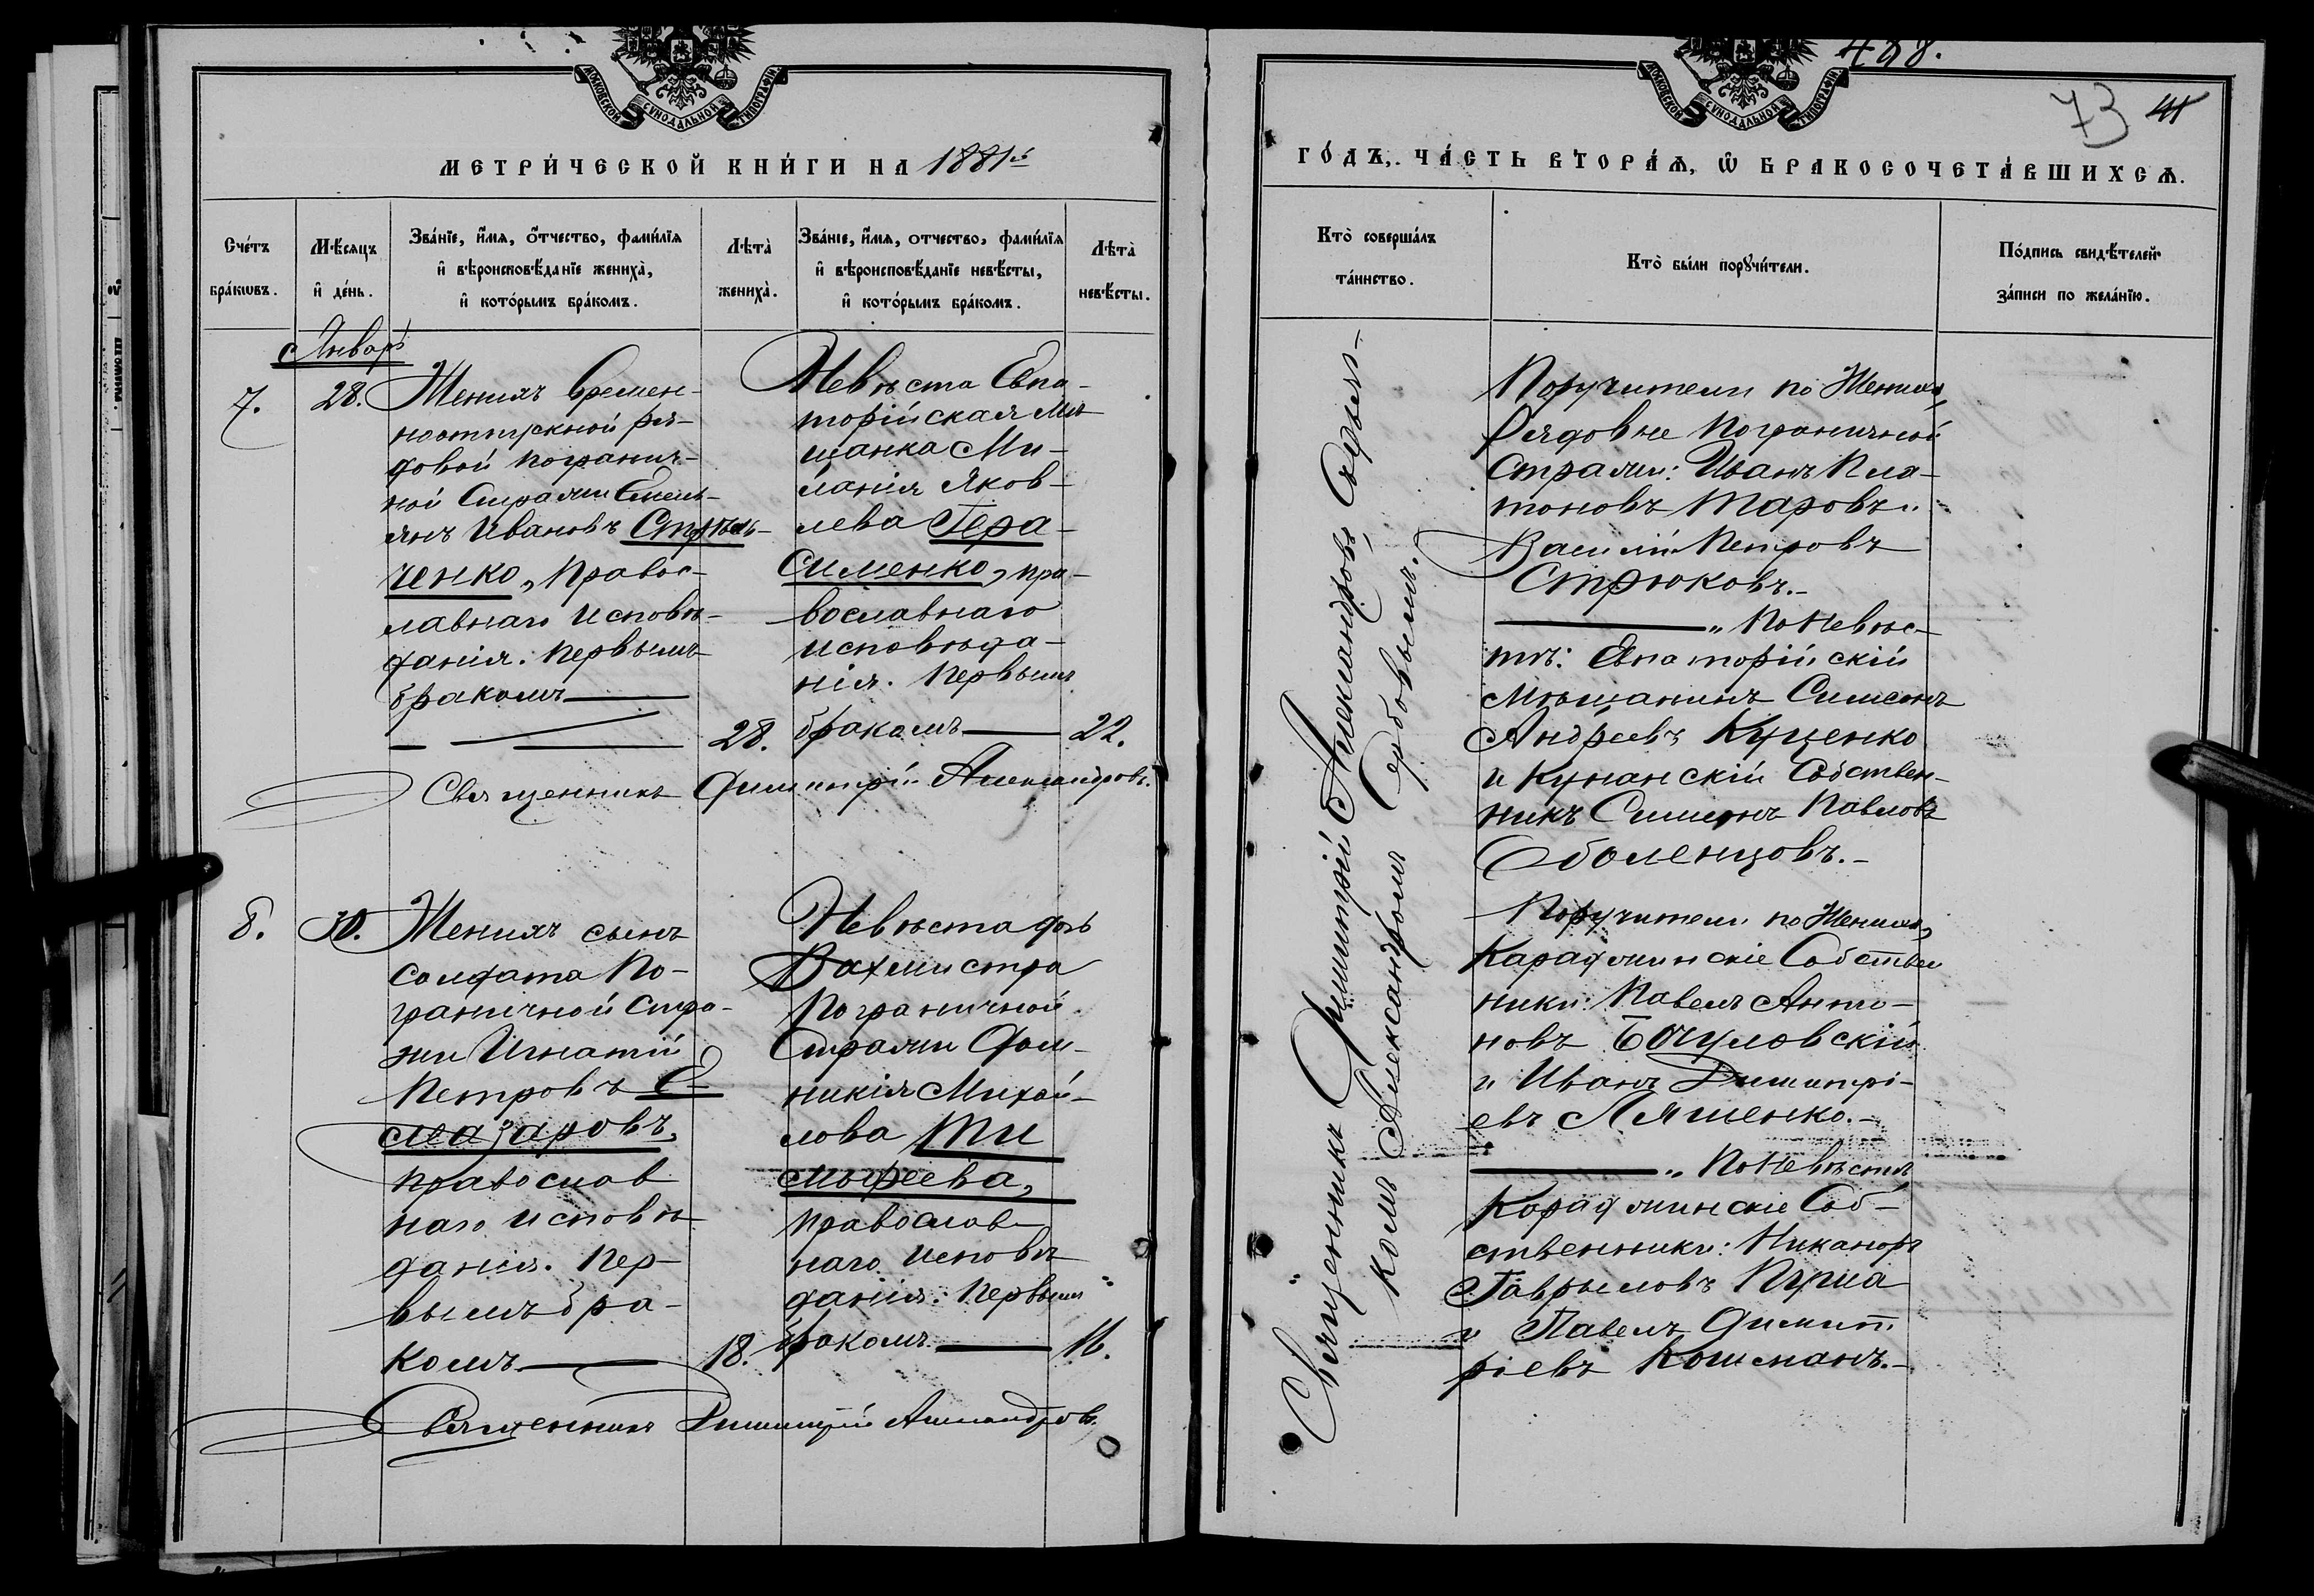 МОСКОВСКОЙ СѴНОДАЛЬНОЙ ТИПОГРАФІИ
МЕТРИ́ЧЕСКОЙ КНИ́ГИ НА 1881й
Сче́тъ бра́кѡвъ.
Мѣ́сяцъ и҆ де́нь.
Зва́нїе, и҆́мя, о҆́тчество, фами́лїя
и҆ вѣроисповѣ́данїе жениха̀,
и҆ кото́рымъ бра́комъ.
Лѣта̀ жениха̀.
Зва́нїе, и҆́мя, о́тчество, фами́лїя
и҆ вѣроисповѣ́данїе невѣ́сты,
и҆ кото́рымъ бра́комъ.
Лѣта̀ невѣ́сты.
Январь
7.
28.
Женихъ времен-
ноотпускной ря-
довой погранич-
ной Стражи Емель-
янъ Ивановъ Стрѣль-
ченко, Правос-
лавнаго исповѣ-
данія. Первымъ
бракомъ
28.
Невѣста Евпа-
торійская мѣ-
щанка Ми-
ланія Яков-
лева Гера-
сименко, пра-
вославнаго
исповѣда-
нія. Первымъ
бракомъ
22.
Священникъ Димитрій Александровъ.
8.
30.
Женихъ сынъ
солдата По-
граничной Стра-
жи Игнатій
Петровъ Е-
лазаровъ,
православ
наго исповѣ-
данія. Пер-
вымъ бра-
комъ
18.
Невѣста дочь
Вахмистра
Пограничной
Стражи Дом-
никія Михай-
лова Ти
мофеева,
православ-
наго исповѣ-
данія. Первымъ
бракомъ
16.
Священникъ Димитрій Александровъ.
488.
МОСКОВСКОЙ СѴНОДАЛЬНОЙ ТИПОГРАФІИ
73
ГО́ДЪ, ЧА́СТЬ ВТОРА́Ѧ, Ѡ БРАКОСОЧЕТА́ВШИХСѦ.
Кто̀ соверша́лъ
та́инство.
Кто̀ бы́ли порꙋчи́тели.
По́дпись свидѣ́телей
за́писи по жела́нїю.
Священникъ Димитрій Александровъ
комъ Александромъ Сербовымъ.
Поручители по Женихѣ,
Рядовые Пограничной
Стражи: Иванъ Пла-
тоновъ Таровъ и
Василій Петровъ
Стрюковъ.-
„ По Невѣс-
тѣ: Евпаторійскій
мѣщанинъ Симеонъ
Андреевъ Куценко
и Кунанскій Собствен-
никъ Симеонъ Павловъ
Оболенцовъ.-
Поручители по Женихѣ,
Караджинскіе Собствен
ники: Павелъ Анто-
новъ Боцуловскій
и Иванъ Димитрі-
евъ Ляшенко.-
„ По Невѣстѣ
Караджинскіе Соб-
ственники: Никаноръ
Гавриловъ Пуриа
и Павелъ Димит
ріевъ Кошманъ.-